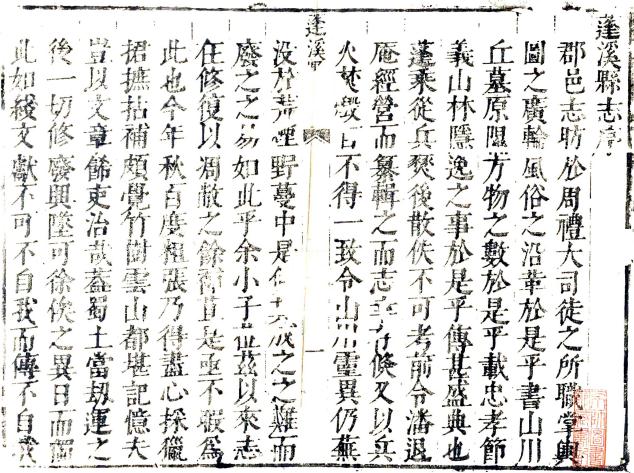 蓬溪縣志序
郡邑志昉於周禮大司徒之所職掌輿
圖之廣輪風俗之沿革於是乎書山川
丘墓原隰方物之數於是乎載忠孝節
義山林隱逸之事於是乎傳甚盛典也
蓬乘從兵燹後散佚不可考前令潘退
庵經營而纂輯之而志
倏又以兵
火焚燬
不得一致令山川靈異仍蕪
蓬溪
一
没於荒煙野蔓中是
成之之難而
廢之之易如此乎余小子
茲以來志
在修復以凋敝之餘
是亟不暇為
此也今年秋百度粗張乃得盡心採獵
捃摭拈補頗覺竹樹雲山都堪記憶夫
豈以文章餙吏治哉蓋蜀土當刼運之
後一切修廢興墜可徐俟之異日而獨
此如綫文獻不可不自我而傳不自我